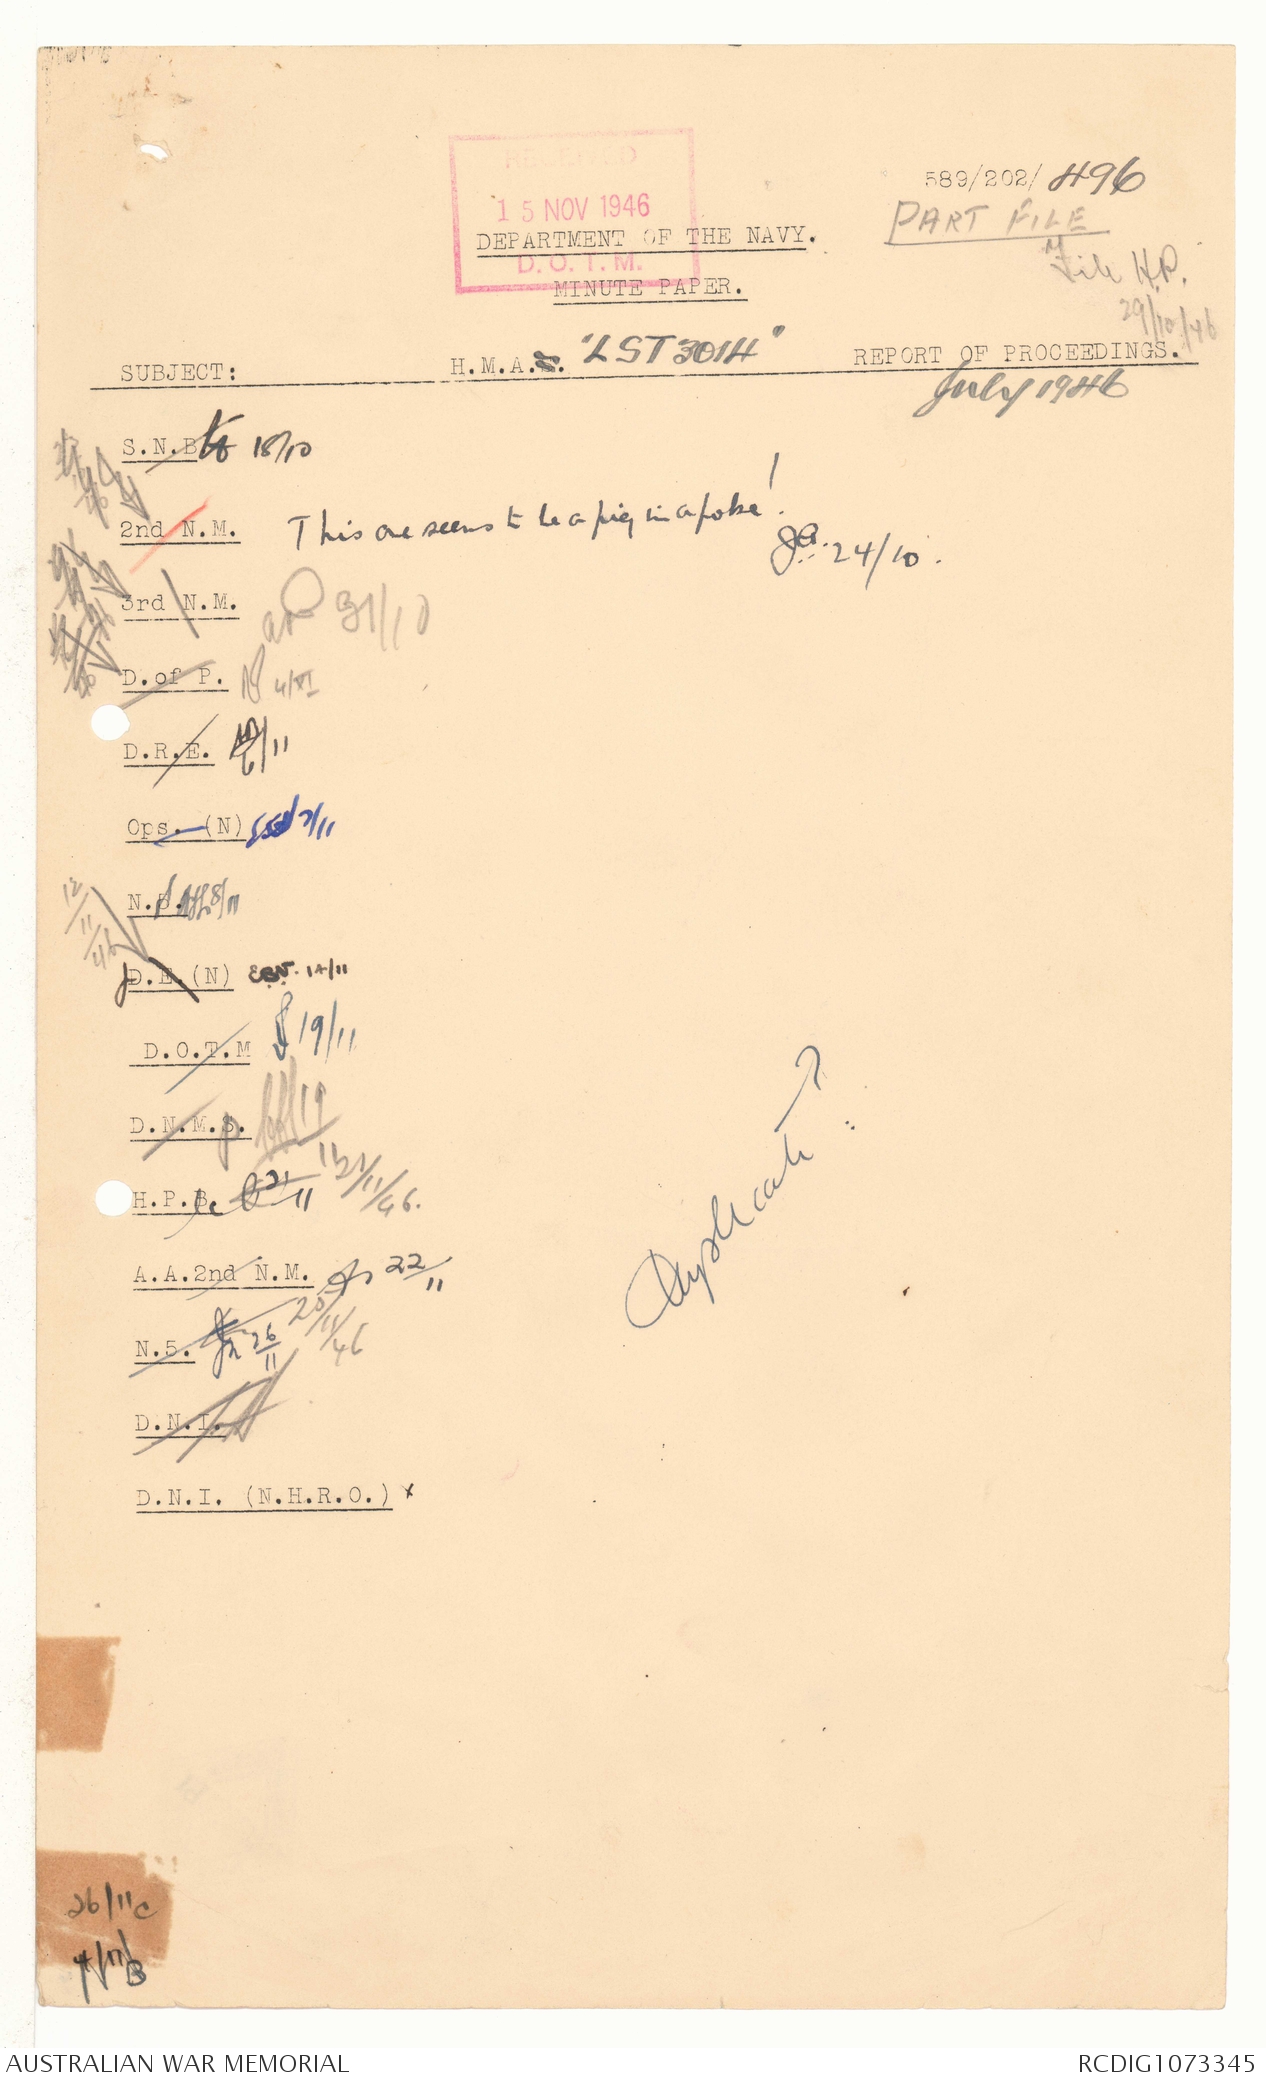 RECEIVED
15 NOV 1946
D.O.T.M.
589/202/496
PART FILE
File H.P.
29/10/46
DEPARTMENT OF THE NAVY.
MINUTE PAPER.
SUBJECT: H.M.A.S. "LST 3014" REPORT OF PROCEEDINGS.
July 1946
S.N.B 18/10
2nd N.M. This one seems to be a pig in a poke!
24/10.
3rd N.M. 31/10
D.of P. 4/XI
D.R.E. 6/11
Ops. (N) 7/11
N.B. 8/11
12/11/46
D.E.(N) 14/11
D.O.T.M 19/11
D.N.M.S. 19/11
H.P.B. 21/11 21/11/46.
Duplicate?
A.A.2nd N.M. 22/11
N.5. 26/11 25/11/46
D.N.I.
D.N.I. (N.H.R.O.) x
26/11 C
AUSTRALIAN WAR MEMORIAL RCDIG1073345